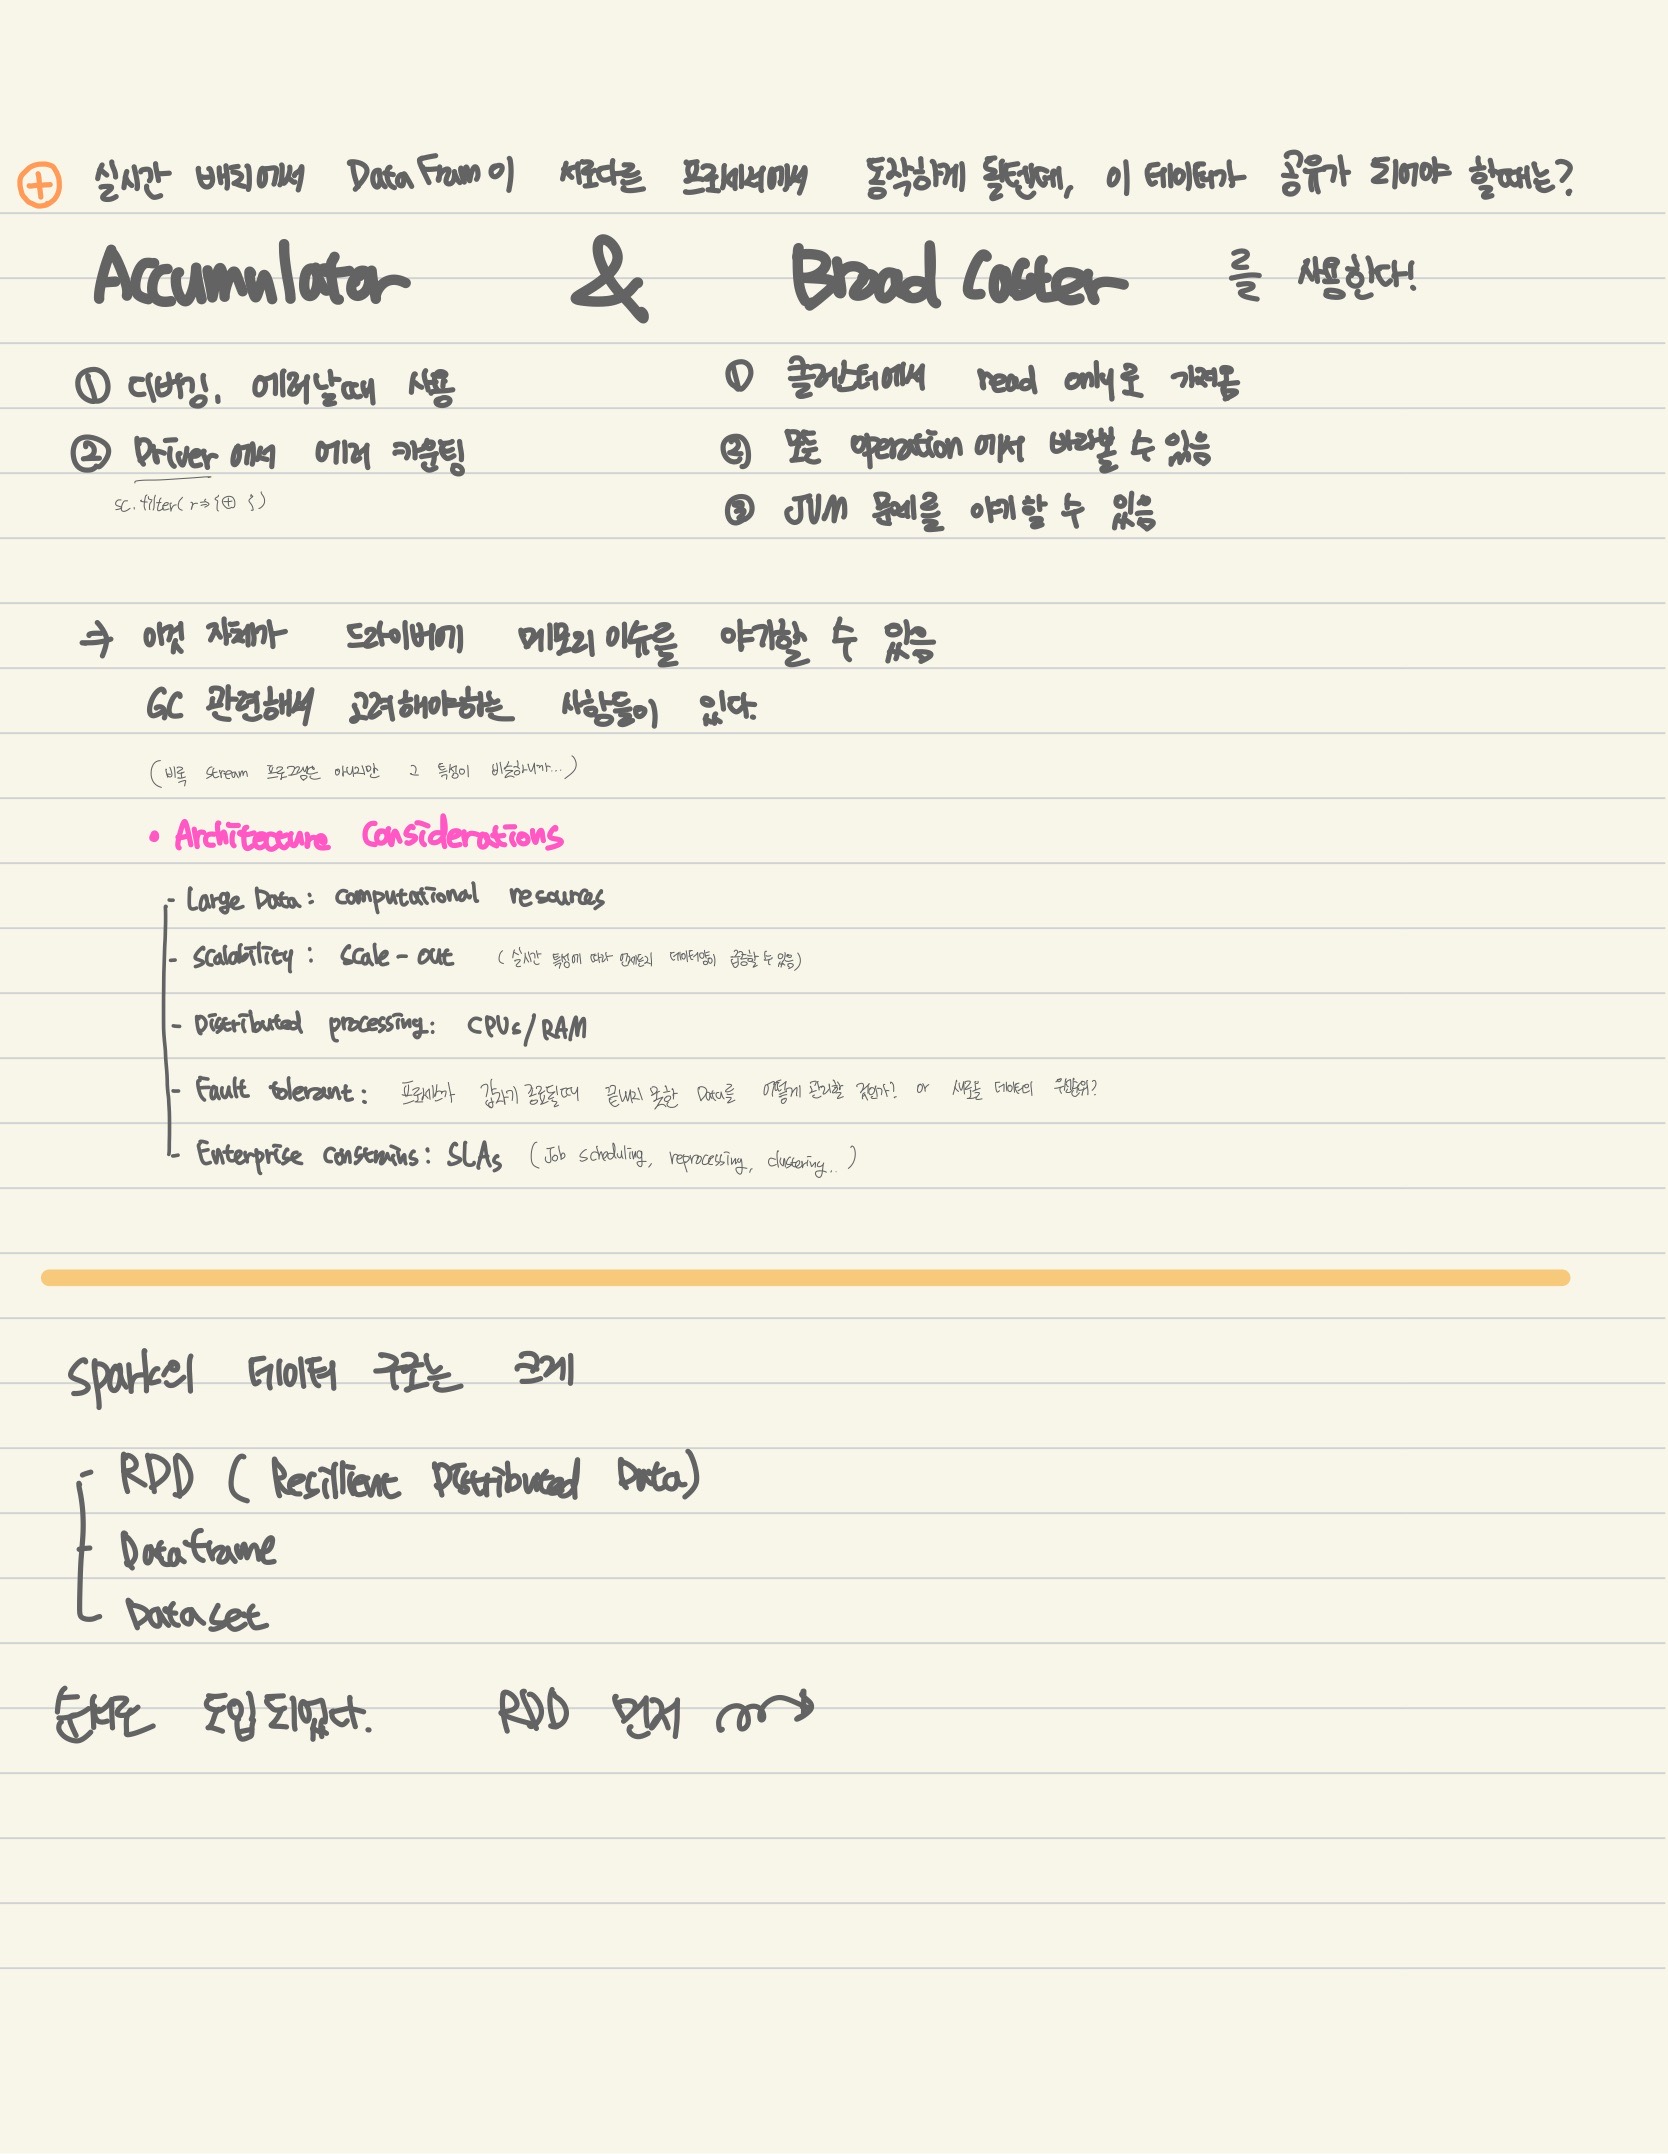 ⊕ 실시간 배치에서 Data Fram이 서로다른 프로세서에서 동작하게 될텐데, 이 데이터가 공유가 되어야 할때는?
Accumulator & Broad Caster 를 사용한다!
① 디버깅, 에러날때 사용
② Driver에서 에러 카운팅
sc.filter(r⇒{⊕ })
① 클러스터에서 read only로 가져옴
② 모든 operation에서 바라볼 수 있음
③ JVM 문제를 야기할 수 있음
⇒ 이것 자체가 드라이버에 메모리 이슈를 야기할 수 있음
GC 관련해서 고려해야하는 사항들이 있다.
(비록 stream 프로그램은 아니지만 그 특성이 비슷하니까...)
• Architecture Considerations
- Large Data: computational resources
- Scalability: scale-out (실시간 특성에 따라 언제든지 데이터양이 급증할 수 있음)
- Distributed processing: CPUs/RAM
- Fault tolerant: 프로세스가 갑자기 종료될때 끝내지 못한 Data를 어떻게 관리할 것인가? or 새로운 데이터의 우선순위?
- Enterprise constrains: SLAs (Job scheduling, reprocessing, clustering..)
Spark의 데이터 구조는 크게
- RDD (Resilient Distributed Data)
- Dataframe
- Dataset
순서로 도입되었다. RDD 먼저